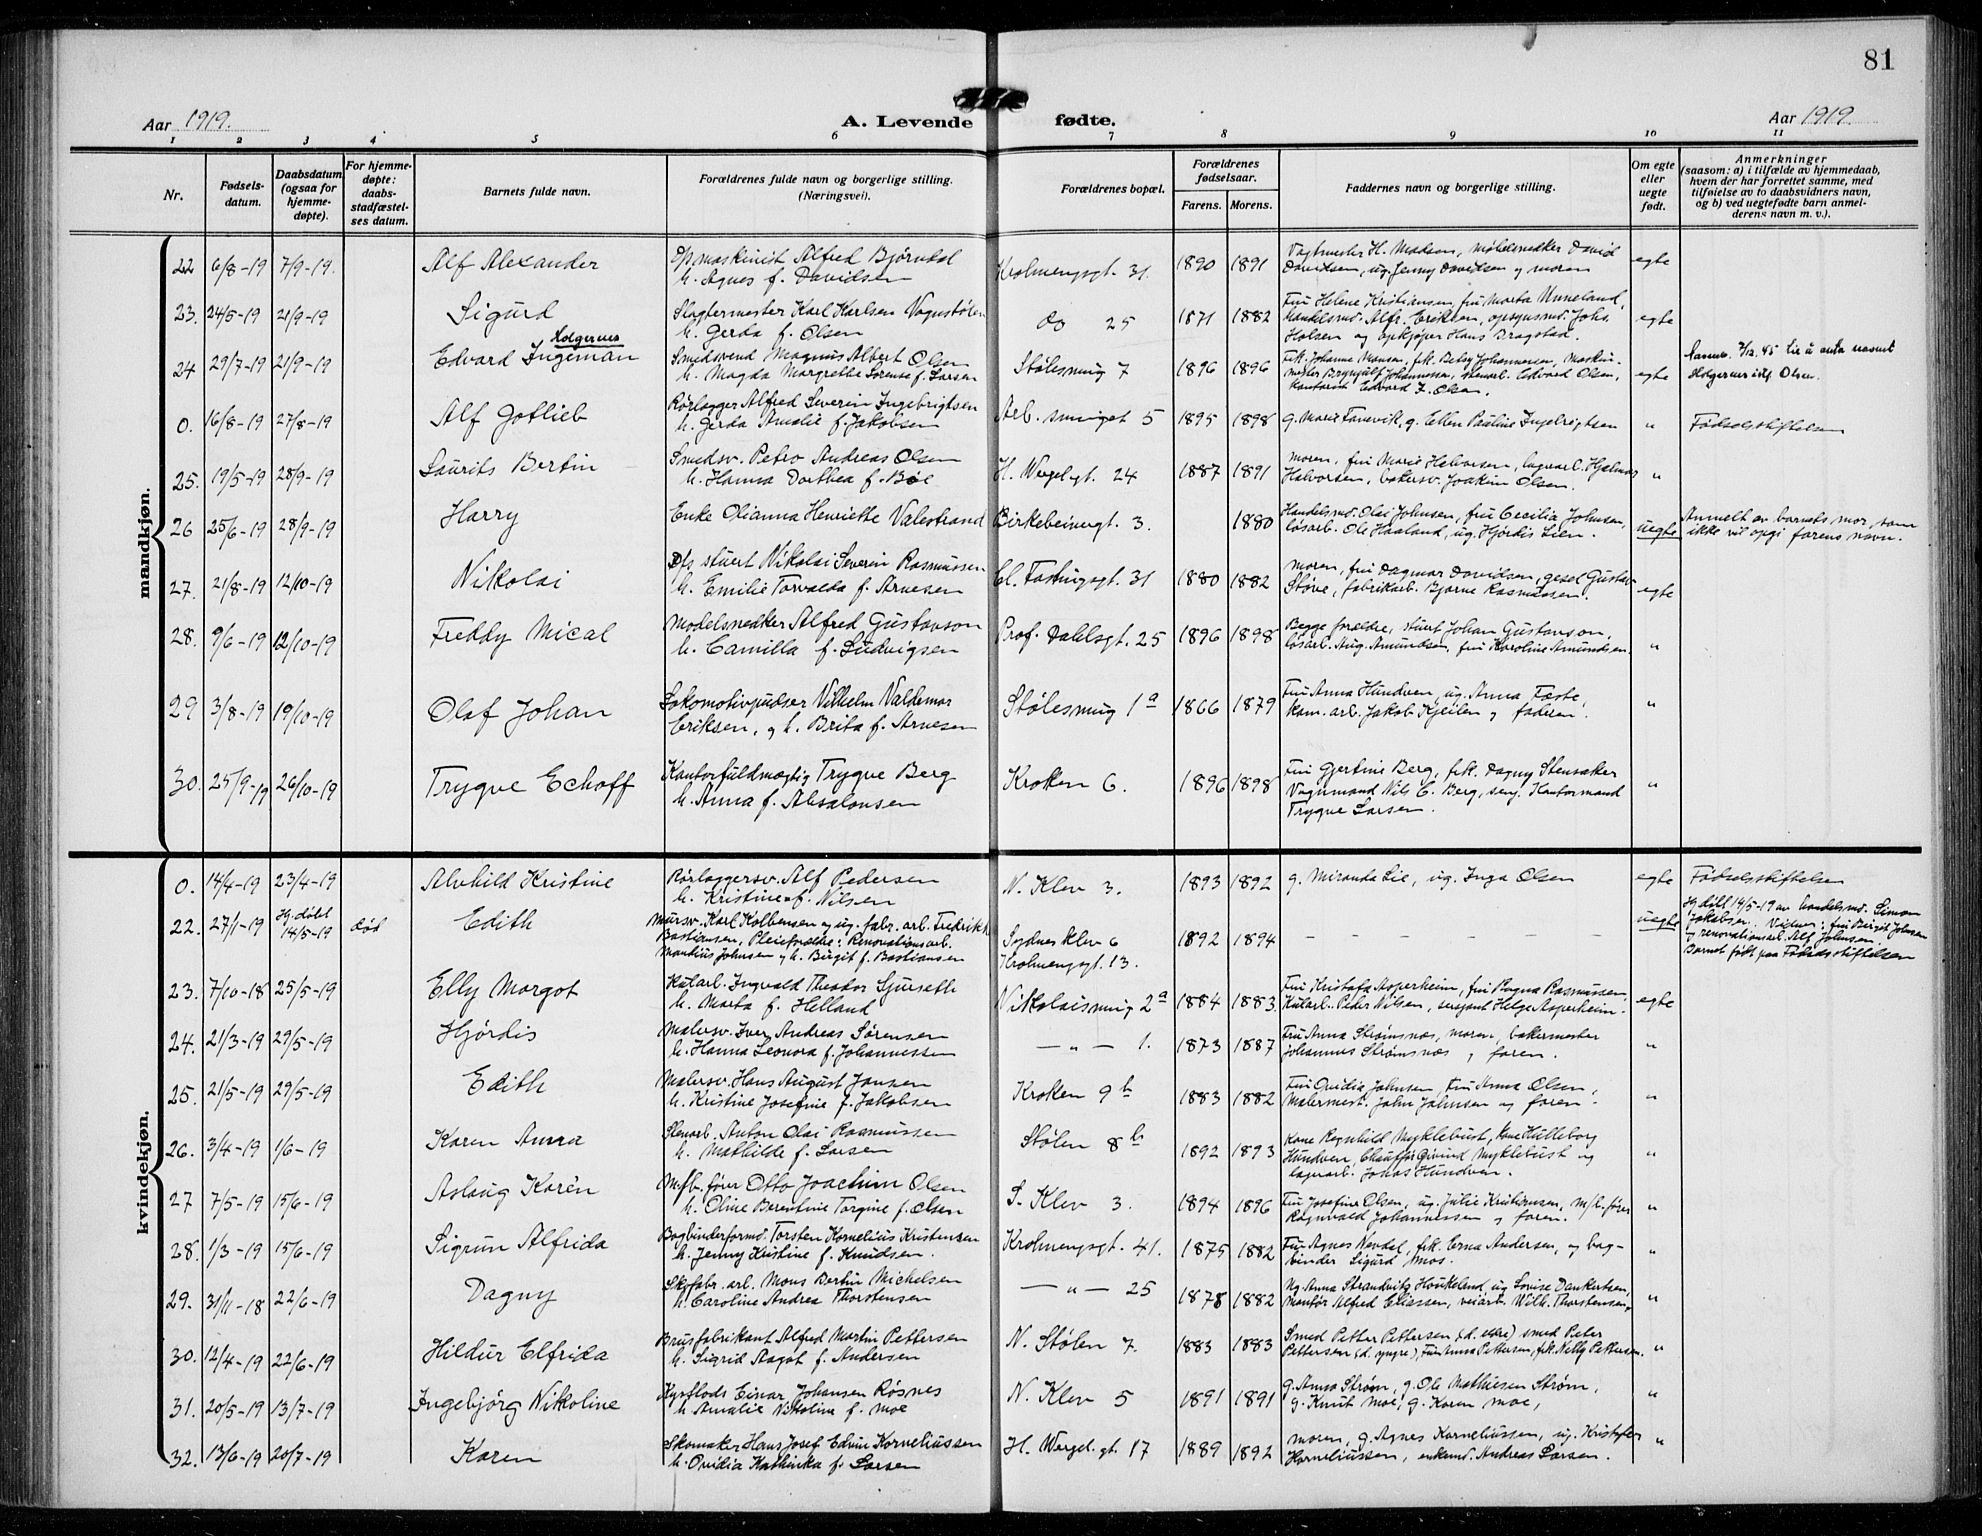 81
Aar 1919.
A. Levende fødte.
Aar 1919.
1 2 3 4 5 6 7 8 9 10 11
Nr.
Fødsels-
datum.
Daabsdatum
(ogsaa for
hjemme-
døpte).
For hjemme-
døpte:
daabs-
stadfæstel-
ses datum.
Barnets fulde navn.
Forældrenes fulde navn og borgerlige stilling.
(Næringsvei).
Forældrenes bopæl.
Forældrenes
fødselsaar.
Farens. Morens.
Faddernes navn og borgerlige stilling.
Om egte
eller
uegte
født.
Anmerkninger
(saasom: a) i tilfælde av hjemmedaab,
hvem der har forrettet samme, med
tilføielse av to daabsvidners navn,
og b) ved uegtefødte barn anmel-
derens navn m. v.).
mandkjøn.
22 6/8-19 7/9-19. Alf Alexander
maskinist Alfred Bjørndal
h. Agnes f. Davidsen
Krohnengsgt. 31. 1890 1891
Vagtmester H. Madsen, møbelsnedker David
Davidsen, ug. Jenny Davidsen og moren
egte
23. 24/5-19 21/9-19 Sigurd
Slagtermester Karl Karlsen Vognstølen
h. Gerda f. Olsen
do 25 1871 1882
Fru Helene Kristiansen, fru Marta Unneland,
Handelsmd. Alfr. Eriksen, opsynsmd. Johs.
Holsen og opkjøper Hans Dragstad.
egte
24 29/7-19 21/9-19 Edvard Ingeman Holgernes
Smedsvend Magnus Albert Olsen
h. Magda Margrethe Sørense f. Larsen
Stølesmug 7 1896 1896
Frk. Johanne Monsen, frk. Betsy Johannesen, Maskin-
mester Brynjulf Johannessen, stenarb. Edvard Olsen,
kontorist Edvard J. Olsen.
egte
Olsen.
0. 16/8-19 27/8-19 Alf Gotlieb
Rørlægger Alfred Severin Ingebrigtsen
h. Gerda Amalie f. Jakobsen
Arb. smuget 5 1895 1898
g. Marie Farevik, g. Ellen Pauline Ingebrigtsen
"
Fødselsstiftelsen
25. 19/5-19 28/9-19 Laurits Bertin
Smedsv. Petro Andreas Olsen
h. Hanna Dorthea f. Bøe
H. Wergel.gt. 24 1887 1891
moren, fru Marie Halvorsen, lagerarb. Hjalmar
Halvorsen, bakersv. Joakim Olsen.
"
26 25/6-19 28/9-19 Harry
Enke Olianna Henriette Valestrand
Birkebeinergt. 3. 1880
Handelsmd. Olai Johnsen, fru Cecilia Johnsen,
løsarb. Ole Haaland, ug. Hjördis Lien.
uegte
Anmeldt av barnets mor, som
ikke vil opgi farens navn.
27. 21/8-19 12/10-19 Nikolai
Dfs stuert Nikolai Severin Rasmussen
h. Emilie Torvalda f. Arnesen
Cl. Fastingsgt. 31 1880 1882
moren, fru Dagmar Davidsen, gesel Gustav
Støve, fabrikarb. Bjarne Rasmussen.
egte
28. 9/6-19 12/10-19 Freddy Mical
Modelsnedker Alfred Gustavson
h. Camilla f. Ludvigsen
Prof. Dahlsgt. 25 1896 1898
Begge forældre, stuert Johan Gustavson,
løsarb. Aug. Amundsen, fru Karoline Amundsen.
"
29 3/8-19 19/10-19 Olaf Johan
Lokomotivpudser Vilhelm Valdemar
Eriksen, og h. Brita f. Arnesen
Stølesmug 1a 1866 1879
Fru Anna Hundven, ug. Anna Faste,
kom. arb. Jakob Kjeilen og faderen.
"
30. 25/9-19 26/10-19 Trygve Echoff
Kontorfuldmægtig Trygve Berg
h. Anna f. Absalonsen
Kroken 6. 1896 1898
Fru Gjertine Berg, frk. Dagny Stensaker
Vognmand Nils C. Berg, senj. Kontormand
Trygve Larsen.
"
kvindekjøn.
0. 14/4-19 23/4-19 Alvhild Kristine
Rørlæggersv. Alf Pedersen
h. Kristine f. Nilsen
N. Klev 3. 1893 1892
g. Miranda Lie, ug. Inga Olsen
egte
Fødselsstiftelsen
22. 27/1-19 Hj. døbt 14/5-19 død Edith
Mursv. Karl Kolbensen og ug. fabr. arb. Fredrikke
Bastiansen, Pleieforældre: Renovationsarb.
Mantius Johnsen og h. Birgit f. Bastiansen
Sydnesklev 6
Krohnengsgt. 13.
1892 1894
– – – – – –
uegte
Hj. døbt 14/5-19 av handelsmd. Simon
Jakobsen. Vidner: fru Birgit Johnsen
og renovationsarb. Alf Johnsen.
Barnet født paa Fødselsstiftelsen
23. 7/10-18 25/5-19 Elly Margot
Kularb. Ingvald Theodor Sjursæth
h. Marta f. Helland
Nikolaismug 2a 1884 1883
Fru Kristofa Asperheim, fru Ragna Rasmussen,
Kularb. Peter Nilsen, serjant Helge Asperheim.
egte
24. 21/3-19 29/5-19 Hjördis
Malersv. Iver Andreas Sørensen
h. Hanna Leonora f. Johannessen
— " — 1. 1873 1887
Fru Anna Strømsnæs, moren, bakermester
Johannes Strømsnæs og faren.
"
25. 21/5-19 29/5-19 Edith
Malersv. Hans August Jansen
h. Kristine Josefine f. Jakobsen
Kroken 9b 1883 1882
Fru Ovidia Johnsen, fru Anna Olsen,
Malermest. John Johnsen og faren.
"
26. 3/4-19 1/6-19 Karen Anna
Stenarb. Anton Olai Rasmussen
h. Mathilde f. Larsen
Stølen 8b 1892 1893
Kone Ragnhild Myklebust, kone Hulleborg
Hundven, Chauffør Eivind Myklebust og
lagerarb. Johas Hundven.
"
27 7/5-19 15/6-19 Aslaug Karén
M/b. fører Otto Joachim Olsen
h. Oline Berentine Torgine f. Olsen
S. Klev 3. 1894 1896
Fru Josefine Olsen, ug. Julie Kristiansen, m/b. fører
Ragnvald Johannessen og faren.
"
28. 1/3-19 15/6-19 Sigrun Alfrida
Bogbinderformd. Torsten Kornelius Kristensen
h. Jenny Kristine f. Knudsen.
Krohnengsgt. 41. 1875 1882
Fru Agnes Nevdal, frk. Erna Andersen, og bog-
binder Sigurd Mos.
"
29. 31/11-18 22/6-19 Dagny
Skofabr. arb. Mons Bertin Michelsen
h. Caroline Andrea Thorstensen
— " — 25 1878 1882
Ug. Anna Strandvitz Haukeland, ug. Lovise Dankertsen,
Montør Alfred Eliassen, veiarb. Wilh. Thorstensen.
"
30. 12/4-19 22/6-19 Hildur Elfrida
Brusfabrikant Alfred Martin Pettersen
h. Sigrid Aagot f. Andersen
N. Stølen 7. 1883 1883
Smed Petter Pettersen (d. eldre) smed Peter
Pettersen (d. yngre), Fru Anna Pettersen, frk. Nelly Pettersen.
"
31. 20/5-19 13/7-19 Ingebjörg Nikoline
Kysflods Einar Johansen Røsnes
h. Amalie Nikoline f. Moe
N. Klev 5 1891 1891
g. Anna Strøm, g. Ole Mathiesen Strøm,
g. Knut Moe, g. Karen Moe,
"
32. 13/6-19 20/7-19 Karen
Skomaker Hans Josef Edvin Korneliussen
h. Ovidia Kathinka f. Larsen
H. Wergel.gt. 17 1889 1892
moren, g. Agnes Korneliussen, ug. Kristofer
Korneliussen, enkemd. Andreas Larsen.
"